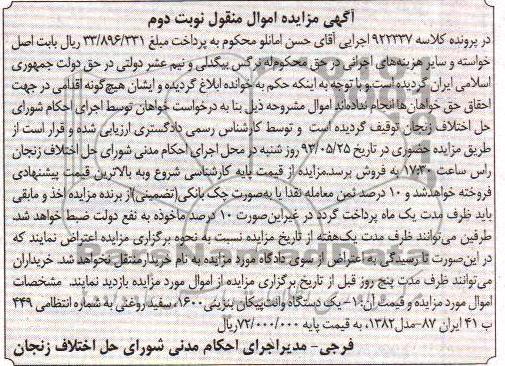 آگهی مزایده اموال منقول نوبت دوم
در پرونده کلاسه ۹۲۲۲۳۷ اجرایی آقای حسن امانلو محکوم به پرداخت مبلغ ۳۳/۸۹۶/۲۳۱ ریال بابت اصل
خواسته و سایر هزینه‌های اجرائی در حق محکوم‌له نرگس بیگدلی و نیم عشر دولتی در حق دولت جمهوری
اسلامی ایران گردیده است و با توجه به اینکه حکم به خوانده ابلاغ گردیده و ایشان هیچ‌گونه اقدامی در جهت
احقاق حق خواهان‌ها انجام نداده‌اند اموال مشروحه ذیل بنا به درخواست خواهان توسط اجرای احکام شورای
حل اختلاف زنجان توقیف گردیده است و توسط کارشناس رسمی دادگستری ارزیابی شده و قرار است از
طریق مزایده حضوری در تاریخ ۹۳/۰۵/۲۵ روز شنبه در محل اجرای احکام مدنی شورای حل اختلاف زنجان
راس ساعت ۱۷:۳۰ به فروش برسد.مزایده از قیمت پایه کارشناسی شروع وبه بالاترین قیمت پیشنهادی
فروخته خواهدشد و ۱۰ درصد ثمن معامله نقدا یا به‌صورت چک بانکی(تضمینی)از برنده مزایده اخذ و مابقی
باید ظرف مدت یک ماه پرداخت گردد در غیراین‌صورت ۱۰ درصد ماخوذه به نفع دولت ضبط خواهد شد.
طرفین می‌توانند ظرف مدت یک‌هفته از تاریخ مزایده نسبت به نحوه برگزاری مزایده اعتراض نمایند که
در این‌صورت تا رسیدگی به اعتراض از سوی دادگاه مورد مزایده به نام خریدارمنتقل نخواهد شد. خریداران
می‌توانند ظرف مدت پنج روز قبل از تاریخ برگزاری مزایده از اموال مورد مزایده بازدید نمایند. مشخصات
اموال مورد مزایده و قیمت آن:۱- یک دستگاه وانت‌پیکان بنزینی۱۶۰۰، سفید روغنی به شماره انتظامی ۴۴۹
ب ۴۱ ایران ۸۷-مدل۱۳۸۲، به قیمت پایه ۷۲/۰۰۰/۰۰۰ریال
فرجی- مدیراجرای احکام مدنی شورای حل اختلاف زنجان